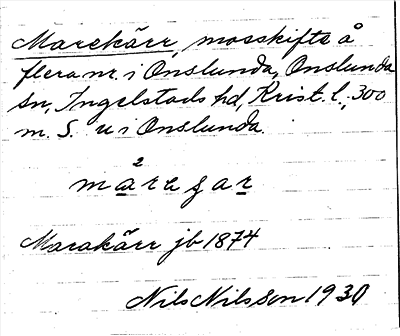 Marekärr, mosskifte å
flera nr. i Onslunda, Onslunda
sn, Ingelstads hd, Krist. l., 300
m. S. u i Onslunda.
2
Marakärr jb 1874
Nils Nilsson 1930